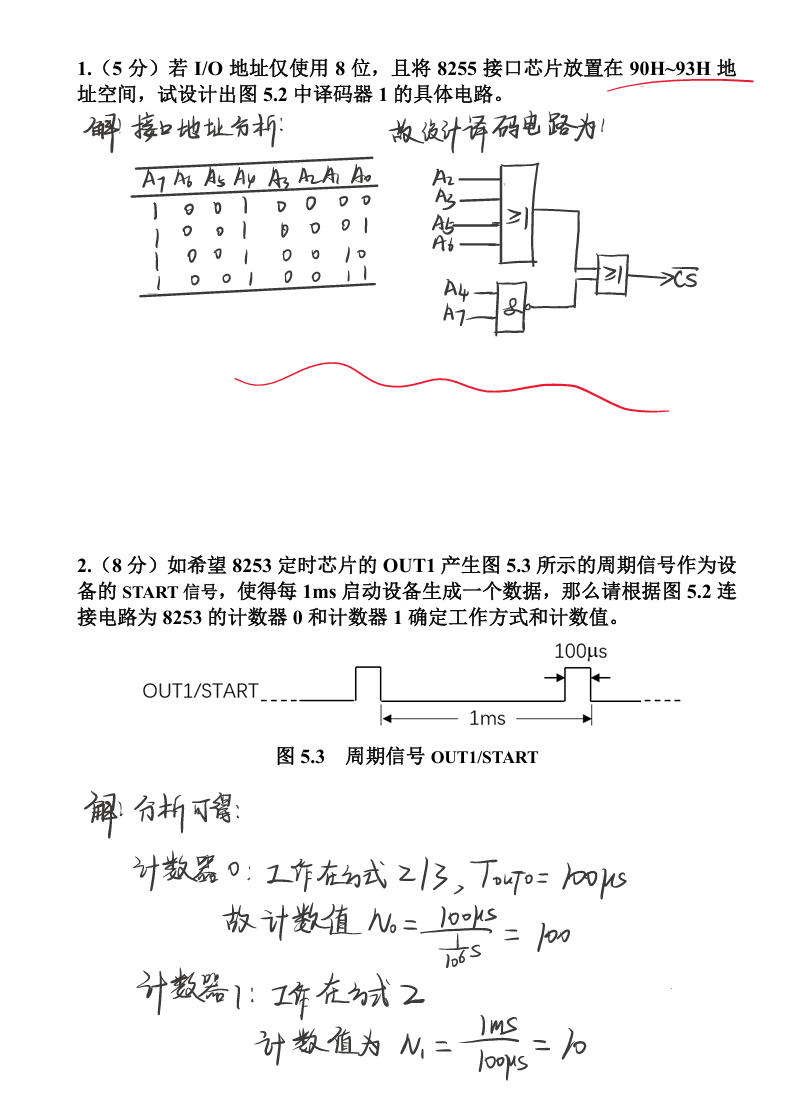 1.（5 分）若 I/O 地址仅使用 8 位，且将 8255 接口芯片放置在 90H~93H 地
址空间，试设计出图 5.2 中译码器 1 的具体电路。
解: 接口地址分析:
故设计译码电路为:
A7 A6 A5 A4 A3 A2 A1 A0
1 0 0 1 0 0 0 0
1 0 0 1 0 0 0 1
1 0 0 1 0 0 1 0
1 0 0 1 0 0 1 1
A2
A3
A5
A6
≥1
A4
A7
&
≥1
CS
2.（8 分）如希望 8253 定时芯片的 OUT1 产生图 5.3 所示的周期信号作为设
备的 START 信号，使得每 1ms 启动设备生成一个数据，那么请根据图 5.2 连
接电路为 8253 的计数器 0 和计数器 1 确定工作方式和计数值。
100μs
OUT1/START
1ms
图 5.3 周期信号 OUT1/START
解: 分析可得:
计数器0: 工作在方式 2/3, TOUT0 = 100μs
故计数值 N0 = 100μs / (1/10⁶ s) = 100
计数器1: 工作在方式 2
计数值为 N1 = 1ms / 100μs = 10